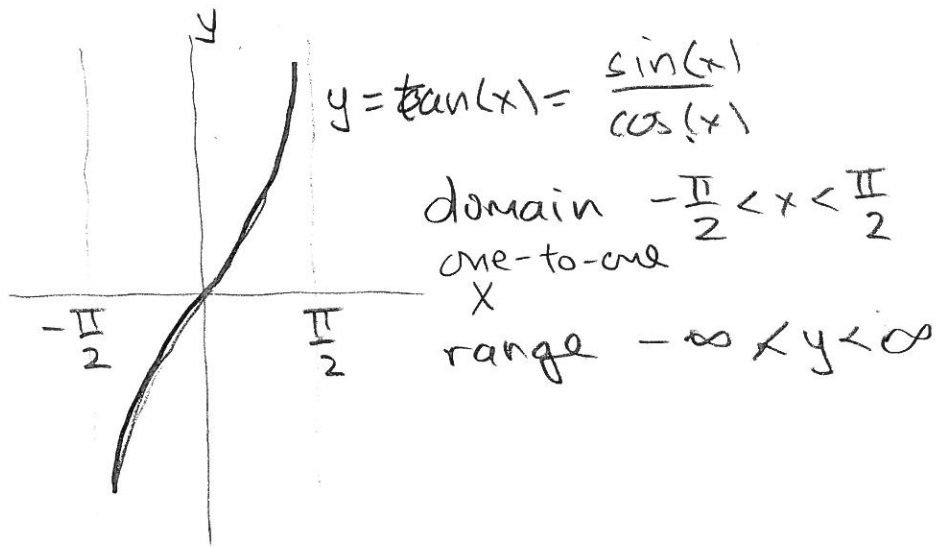 y
y = tan(x) = sin(x)/cos(x)
domain -π/2 < x < π/2
one-to-one
x
-π/2
π/2
range -∞ < y < ∞